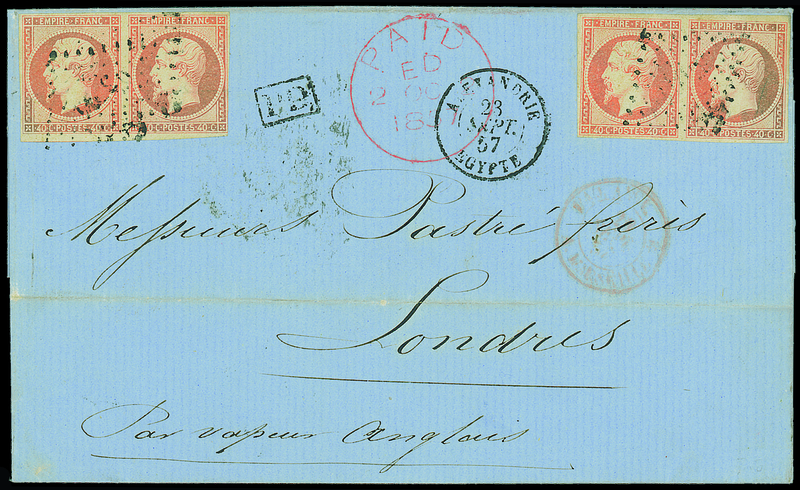 EMPIRE FRANC. EMPIRE FRANC.
40 C. POSTES 40 C. 40 C. POSTES 40 C.
EMPIRE FRANC. EMPIRE FRANC.
40 C. POSTES 40 C. 40 C. POSTES 40 C.
P.D.
PAID
ED
2 OC
1857
ALEXANDRIE
23
SEPT.
57
EGYPTE
Messieurs Pastré frères
Londres
Par vapeur Anglais